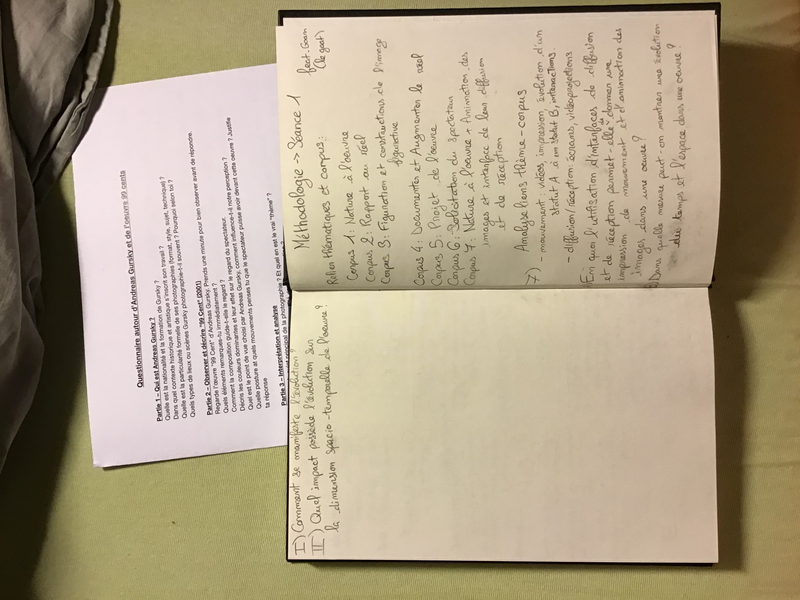 Questionnaire autour d'Andreas Gursky et de l'oeuvre 99 cents
Partie 1 - Qui est Andreas Gursky ?
Quelle est la nationalité et la formation de Gursky ?
Dans quel contexte historique et artistique s'inscrit son travail ?
Quelle est la particularité formelle de ses photographies (format, style, sujet, technique) ?
Quels types de lieux ou scènes Gursky photographie-t-il souvent ? Pourquoi selon toi ?
Partie 2 - Observer et décrire "99 Cent" (2001)
Regarde l'œuvre "99 Cent" d'Andreas Gursky. Prends une minute pour bien observer avant de répondre.
Quels éléments remarques-tu immédiatement ?
Comment la composition guide-t-elle le regard ?
Décris les couleurs dominantes et leur effet sur le regard du spectateur.
Quel est le point de vue choisi par Andreas Gursky, comment influence-t-il notre perception ?
Quelle posture et quels mouvements penses tu que le spectateur puisse avoir devant cette oeuvre ? Justifie
ta réponse
Partie 3 - Interprétation et analyse
principal de la photographie ? Et quel en est le vrai "thème" ?
Méthodologie -> Séance 1
feat. Goam
(le goat)
Relier thématiques et corpus:
Corpus 1: Nature à l'oeuvre
Corpus 2: Rapport au réel
Corpus 3: Figuration et constructions de l'image
figurative
Corpus 4: Documenter et Augmenter le réel
Corpus 5: Projet de l'oeuvre
Corpus 6: Sollicitation du spectateur
Corpus 7: Nature à l'oeuvre + Animation des
images et interface de leur diffusion
et de réception
Analyse liens thème - corpus
7) - mouvement: vidéos, impression, évolution d'un
statut A à un statut B, interactions.
- diffusion/réception: écrans, vidéoprojections
En quoi l'utilisation d'interfaces de diffusion
et de réception permet-elle de donner une
impression de mouvement et d'animation des
images dans une oeuvre ?
Dans quelle mesure peut-on montrer une évolution
du temps et l'espace dans une oeuvre ?
I) Comment se manifeste l'évolution ?
II) Quel impact possède l'évolution sur
la dimension spacio-temporelle de l'oeuvre ?